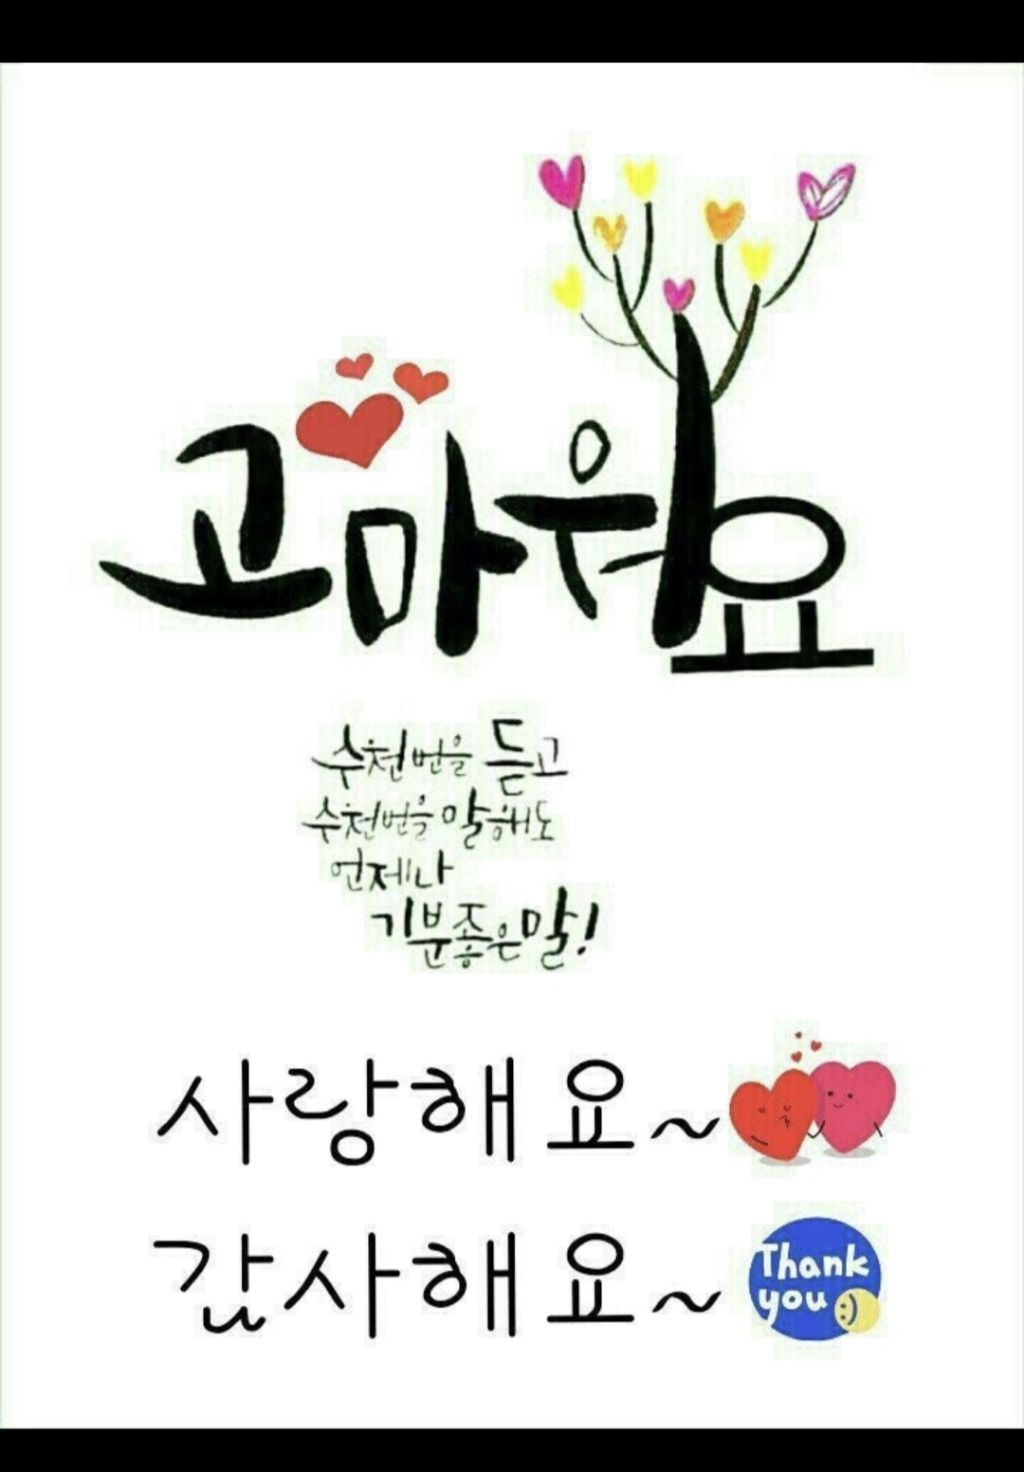 고마워요
수천번을 듣고
수천번을 말해도
언제나
기분좋은말!
사랑해요~
감사해요~
Thank
you :)